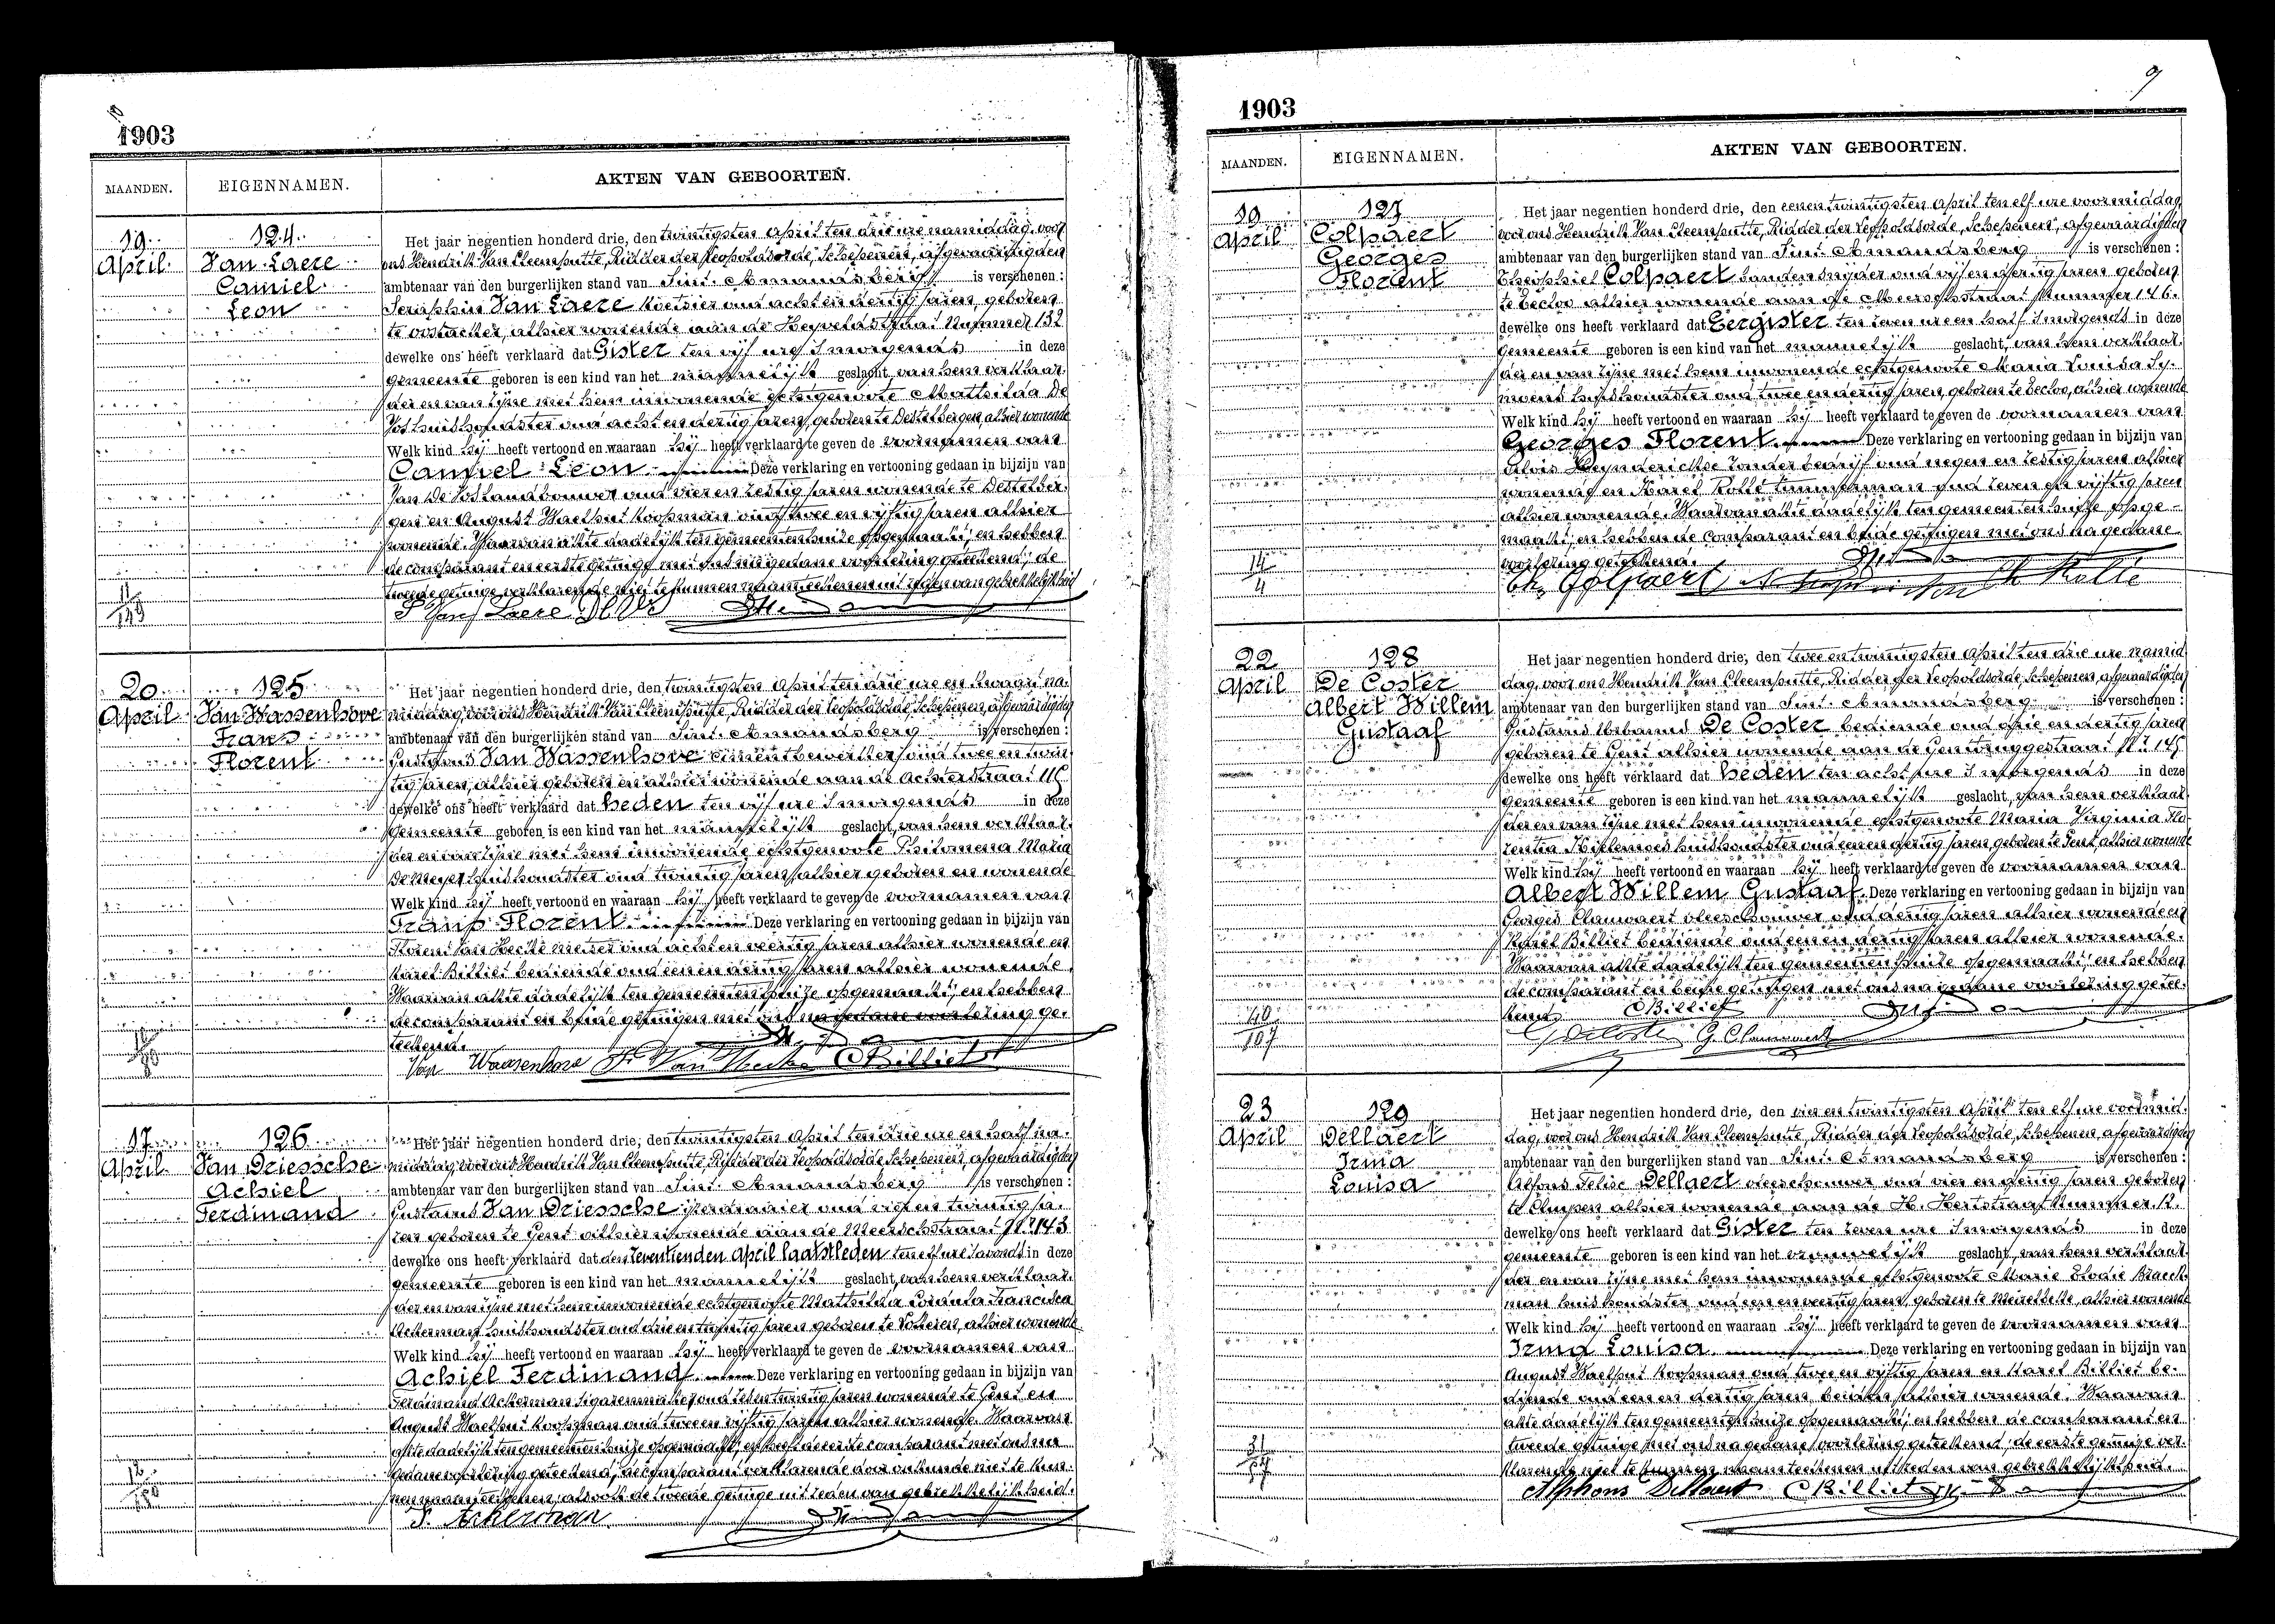 1903
MAANDEN. EIGENNAMEN. AKTEN VAN GEBOORTEN.
19 April
124
Van Laere
Camiel
Leon
Het jaar negentien honderd drie, den twintigsten April ten drie ure namiddag, voor
ons Hendrik Van Cleemputte, Ridder der Leopoldsorde, Schepenen, afgevaardigden
ambtenaar van den burgerlijken stand van Sint Amandsberg is verschenen :
Seraphin Van Laere koetsier oud acht en dertig jaren, geboren
te Oostacker, alhier wonende aan de Heyveldstraat Nummer 132
dewelke ons heeft verklaard dat Gister ten vijf ure 's morgends in deze
gemeente geboren is een kind van het mannelijk geslacht, van hem verklaar-
der en van zijne met hem inwonende echtgenoote Mathilda De
Vos huishoudster oud acht en dertig jaren, geboren te Destelbergen, alhier wonende
Welk kind hij heeft vertoond en waaraan hij heeft verklaard te geven de voornamen van
Camiel Leon Deze verklaring en vertooning gedaan in bijzijn van
Jan De Vos Landbouwer oud vier en zestig jaren wonende te Destelber-
gen en August Waelput koopman oud twee en vijftig jaren alhier
wonende. Waarvan akte dadelijk ten gemeentenhuize opgemaakt; en hebben
de comparant en eerste getuige met ons na gedane voorlezing geteekend; de
tweede getuige verklarende niet te kunnen naamteekenen uit reden van gebrekkelijkheid
S Van Laere
20 April
125
Van Wassenhove
Frans
Florent
Het jaar negentien honderd drie, den twintigsten April ten drie ure en kwaart na-
middag, voor ons Hendrik Van Cleemputte, Ridder der Leopoldsorde, Schepenen, afgevaardigden
ambtenaar van den burgerlijken stand van Sint Amandsberg is verschenen :
Gustavus Van Wassenhove cimentbewerker oud twee en twin-
tig jaren, alhier geboren en alhier wonende aan de Achterstraat 116
dewelke ons heeft verklaard dat heden ten vijf ure 's morgends in deze
gemeente geboren is een kind van het mannelijk geslacht, van hem verklaar-
der en van zijne met hem inwonende echtgenoote Philomena Maria
De Meyer huishoudster oud twintig jaren alhier geboren en wonende
Welk kind hij heeft vertoond en waaraan hij heeft verklaard te geven de voornamen van
Frans Florent Deze verklaring en vertooning gedaan in bijzijn van
Florent Van Hecke metser oud acht en veertig jaren alhier wonende en
Karel Billiet bediende oud een en dertig jaren alhier wonende.
Waarvan akte dadelijk ten gemeentenhuize opgemaakt; en hebben
de comparant en beide getuigen met ons na gedane voorlezing ge-
teekend.
Van Wassenhove Fr Van Hecke C Billiet
17 April
126
Van Driessche
Achiel
Ferdinand
Het jaar negentien honderd drie, den twintigsten April ten drie ure en half na-
middag, voor ons Hendrik Van Cleemputte, Ridder der Leopoldsorde, Schepenen, afgevaardigden
ambtenaar van den burgerlijken stand van Sint Amandsberg is verschenen :
Gustavus Van Driessche ijzerdraaier oud vijf en twintig ja-
ren geboren te Gent alhier wonende aan de Meerschstraat N° 143
dewelke ons heeft verklaard dat den zeventienden April laatstleden ten elf ure 's avonds in deze
gemeente geboren is een kind van het mannelijk geslacht, van hem verklaar-
der en van zijne met hem inwonende echtgenoote Mathilda Coranta Francisca
Ackerman huishoudster oud drie en twintig jaren geboren te Lokeren, alhier wonende
Welk kind hij heeft vertoond en waaraan hij heeft verklaard te geven de voornamen van
Achiel Ferdinand Deze verklaring en vertooning gedaan in bijzijn van
Ferdinand Ackerman sigarenmaker oud zes en twintig jaren wonende te Gent en
August Waelput koopman oud twee en vijftig jaren alhier wonende. Waarvan
akte dadelijk ten gemeentenhuize opgemaakt; en heeft de eerste comparant met ons na
gedane voorlezing geteekend, de comparant verklarende door onkunde niet te kun-
nen naamteekenen, alsook de tweede getuige uit reden van gebrekkelijkheid.
F. Ackerman
9
1903
MAANDEN. EIGENNAMEN. AKTEN VAN GEBOORTEN.
19 April
127
Colpaert
Georges
Florent
Het jaar negentien honderd drie, den eenen twintigsten April ten elf ure voormiddag
voor ons Hendrik Van Cleemputte, Ridder der Leopoldsorde, Schepenen, afgevaardigden
ambtenaar van den burgerlijken stand van Sint Amandsberg is verschenen :
Theophiel Colpaert bandensnijder oud vijf en dertig jaren geboren
te Eecloo alhier wonende aan de Meerschstraat Nummer 146.
dewelke ons heeft verklaard dat Eergister ten zeven ure en half 's morgends in deze
gemeente geboren is een kind van het mannelijk geslacht, van hem verklaar-
der en van zijne met hem inwonende echtgenoote Maria Louisa Sy-
moens huishoudster oud twee en dertig jaren, geboren te Eecloo, alhier wonende
Welk kind hij heeft vertoond en waaraan hij heeft verklaard te geven de voornamen van
Georges Florent Deze verklaring en vertooning gedaan in bijzijn van
Aloïs Heynderickse zonder bedrijf oud negen en zestig jaren alhier
wonende en Karel Rolle timmerman oud zeven en vijftig jaren
alhier wonende. Waarvan akte dadelijk ten gemeentenhuize opge-
maakt; en hebben de comparant en beide getuigen met ons na gedane
voorlezing geteekend.
14
4
Th. Colpaert Ch Rolle
22 April
128
De Coster
Albert Willem
Gustaaf
Het jaar negentien honderd drie, den twee en twintigsten April ten drie ure namid-
dag, voor ons Hendrik Van Cleemputte, Ridder der Leopoldsorde, Schepenen, afgevaardigden
ambtenaar van den burgerlijken stand van Sint Amandsberg is verschenen :
Gustavus Urbanus De Coster bediende oud drie en dertig jaren
geboren te Gent alhier wonende aan de Gentbruggestraat N°
dewelke ons heeft verklaard dat heden ten acht ure 's morgends in deze
gemeente geboren is een kind van het mannelijk geslacht, van hem verklaar-
der en van zijne met hem inwonende echtgenoote Maria Virginia Flo-
rentia huishoudster oud een en dertig jaren, geboren te Gent, alhier wonende
Welk kind hij heeft vertoond en waaraan hij heeft verklaard te geven de voornamen van
Albert Willem Gustaaf Deze verklaring en vertooning gedaan in bijzijn van
Georges Clauwaert vleeschhouwer oud dertig jaren alhier wonende en
Karel Billiet bediende oud een en dertig jaren alhier wonende.
Waarvan akte dadelijk ten gemeentenhuize opgemaakt; en hebben
de comparant en beide getuigen met ons na gedane voorlezing getee-
kend
40
107
C Billiet
G De Coster G. Clauwaert
23 April
129
Dellaert
Irma
Louisa
Het jaar negentien honderd drie, den vier en twintigsten April ten elf ure voormid-
dag, voor ons Hendrik Van Cleemputte, Ridder der Leopoldsorde, Schepenen, afgevaardigden
ambtenaar van den burgerlijken stand van Sint Amandsberg is verschenen :
Alfons Felix Dellaert vleeschhouwer oud vier en dertig jaren geboren
te Cluysen alhier wonende aan de H. Hertstraat Nummer 12.
dewelke ons heeft verklaard dat Gister ten zeven ure 's morgends in deze
gemeente geboren is een kind van het vrouwelijk geslacht, van hem verklaar-
der en van zijne met hem inwonende echtgenoote Marie Elodie Braeck-
man huishoudster oud een en veertig jaren, geboren te Meirelbeke, alhier wonende
Welk kind hij heeft vertoond en waaraan hij heeft verklaard te geven de voornamen van
Irma Louisa Deze verklaring en vertooning gedaan in bijzijn van
August Waelput koopman oud twee en vijftig jaren en Karel Billiet be-
diende oud een en dertig jaren beiden alhier wonende. Waarvan
akte dadelijk ten gemeentenhuize opgemaakt; en hebben de comparant en
tweede getuige met ons na gedane voorlezing geteekend; de eerste getuige ver-
klarende niet te kunnen naamteekenen uit reden van gebrekkelijkheid.
Alphons Dellaert C Billiet